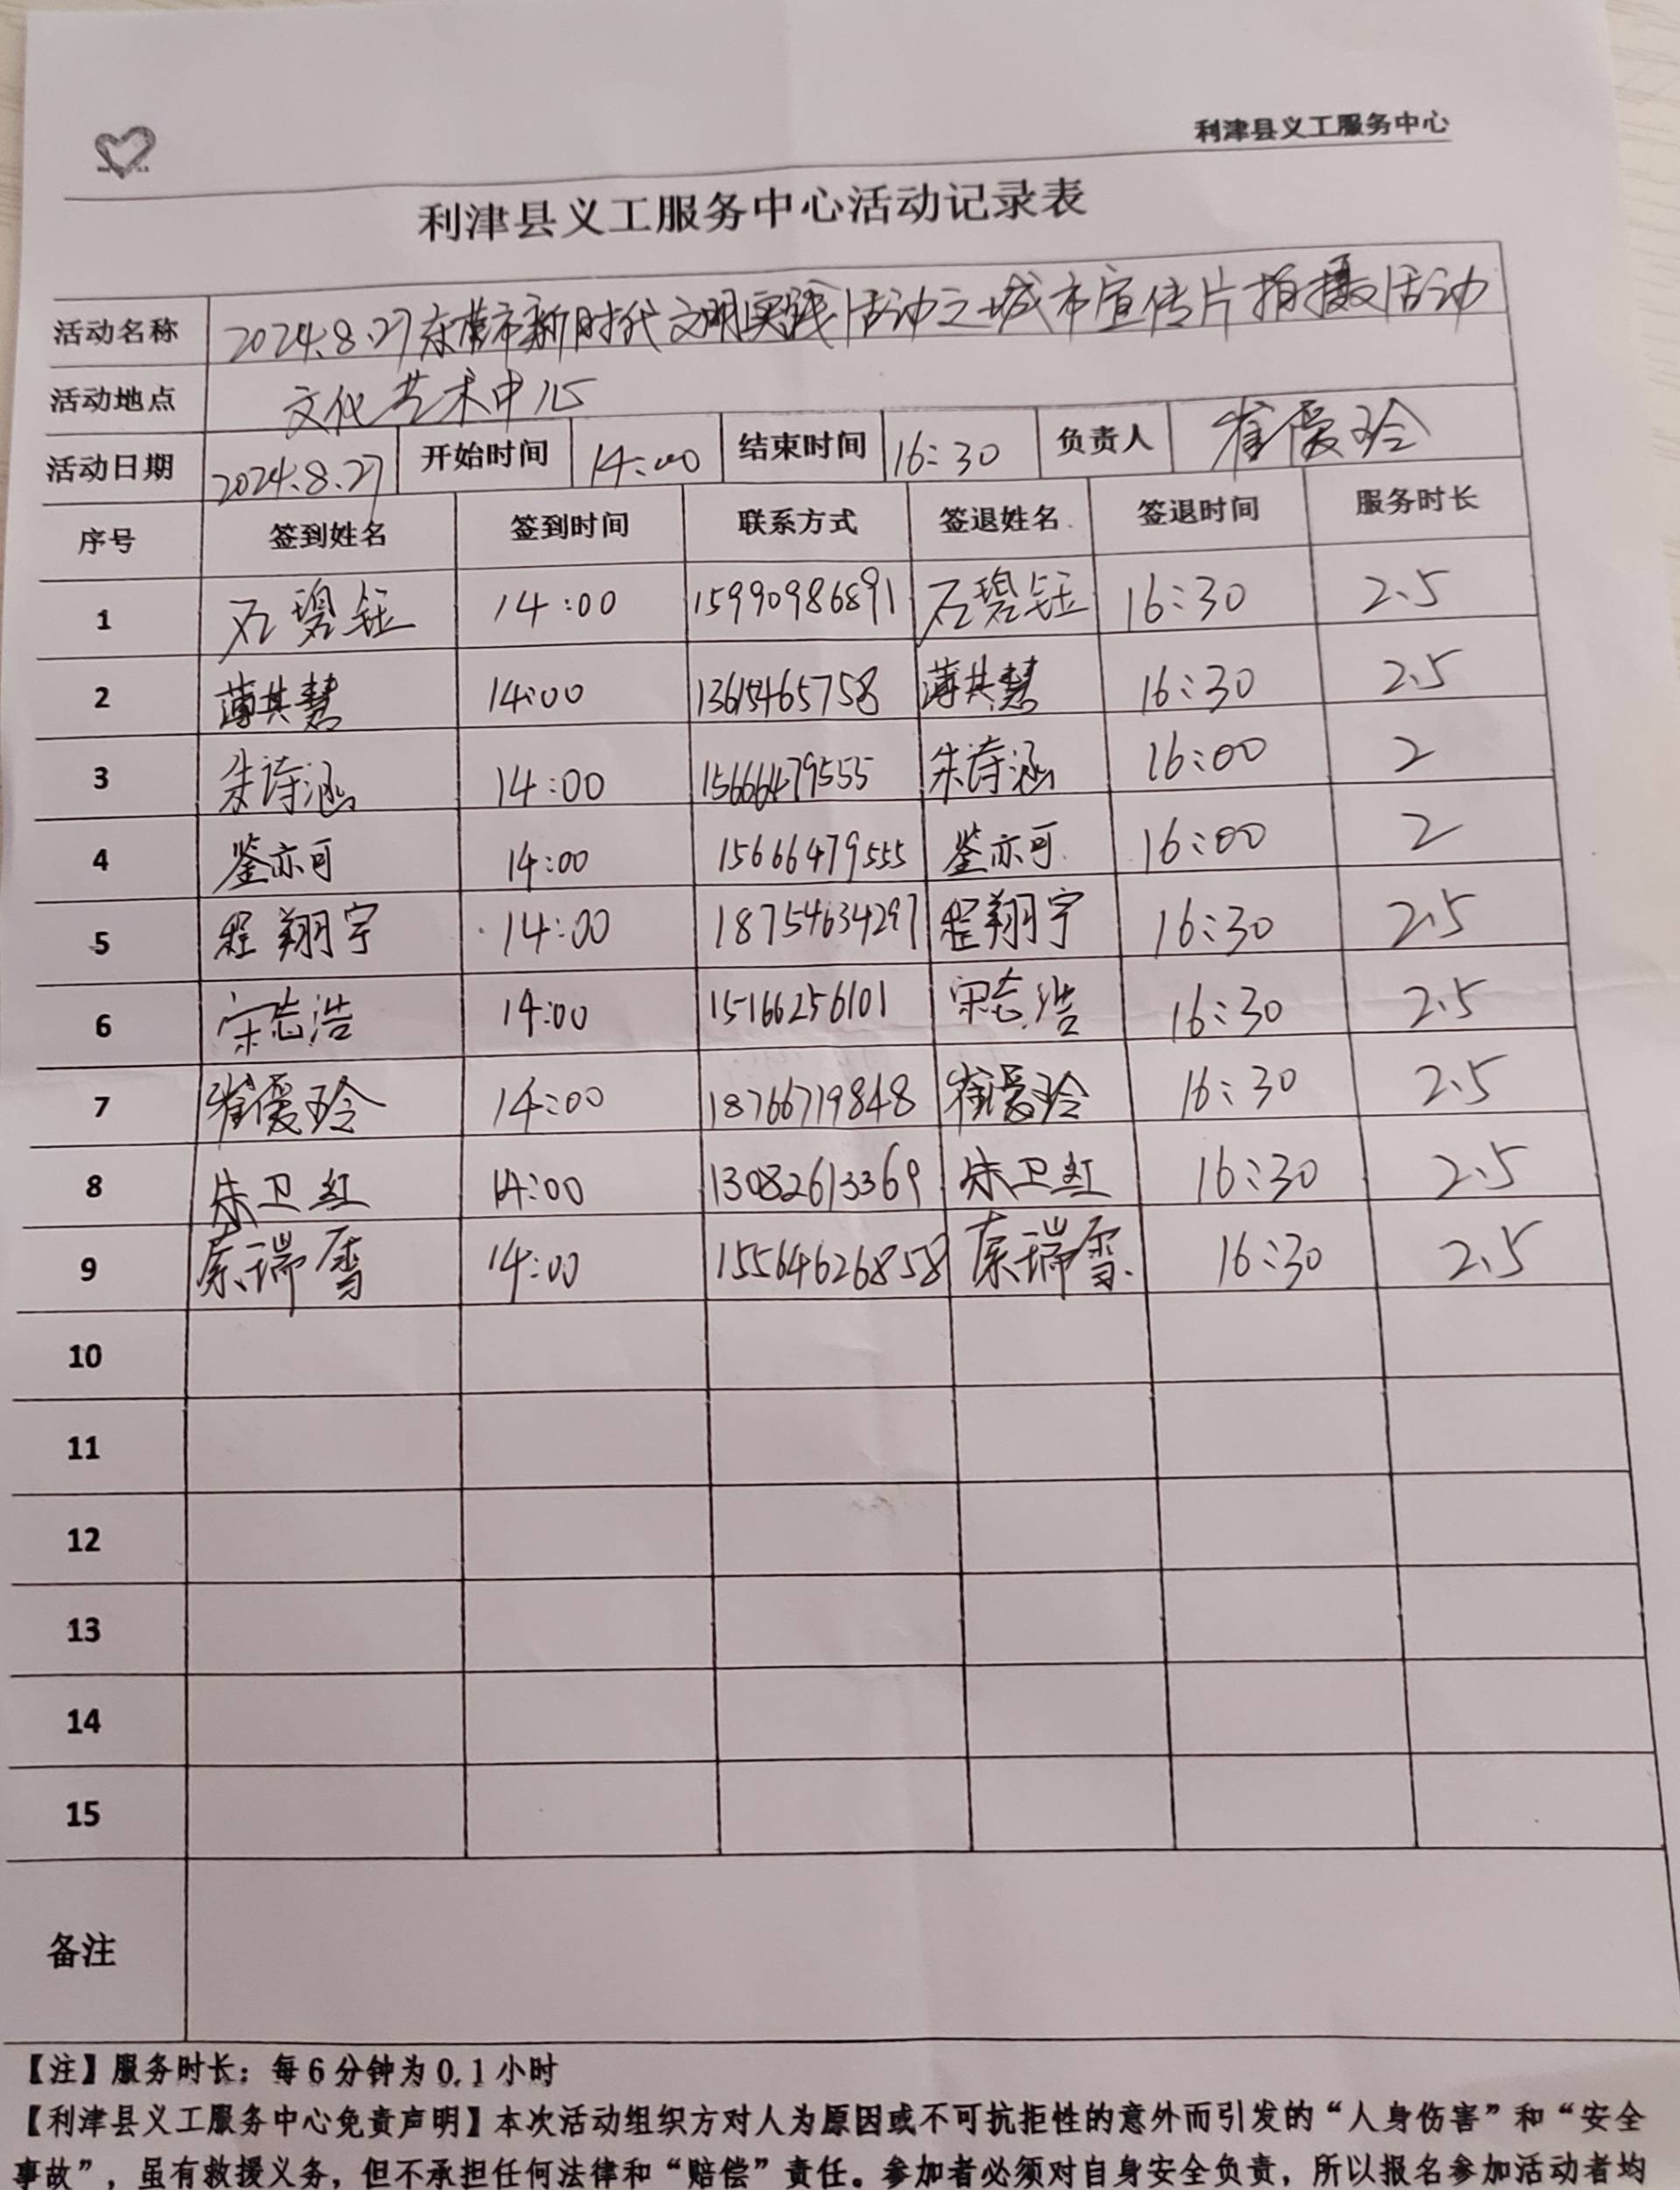 利津县义工服务中心
利津县义工服务中心活动记录表
活动名称 2024.8.27东营市新时代文明实践活动之城市宣传片拍摄活动
活动地点 文化艺术中心
活动日期 2024.8.27 开始时间 14:00 结束时间 16:30 负责人 崔爱玲
序号 签到姓名 签到时间 联系方式 签退姓名 签退时间 服务时长
1 石碧钰 14:00 15990986891 石碧钰 16:30 2.5
2 薄其慧 14:00 13615465758 薄其慧 16:30 2.5
3 朱诗涵 14:00 15666479555 朱诗涵 16:00 2
4 鉴亦可 14:00 15666479555 鉴亦可 16:00 2
5 程翔宇 14:00 18754634297 程翔宇 16:30 2.5
6 宋志浩 14:00 15166256101 宋志浩 16:30 2.5
7 崔爱玲 14:00 18766719848 崔爱玲 16:30 2.5
8 朱卫红 14:00 13082613369 朱卫红 16:30 2.5
9 瑞雪 14:00 15564626858 瑞雪 16:30 2.5
10
11
12
13
14
15
备注
【注】服务时长：每6分钟为0.1小时
【利津县义工服务中心免责声明】本次活动组织方对人为原因或不可抗拒性的意外而引发的“人身伤害”和“安全
事故”，虽有救援义务，但不承担任何法律和“赔偿”责任。参加者必须对自身安全负责，所以报名参加活动者均